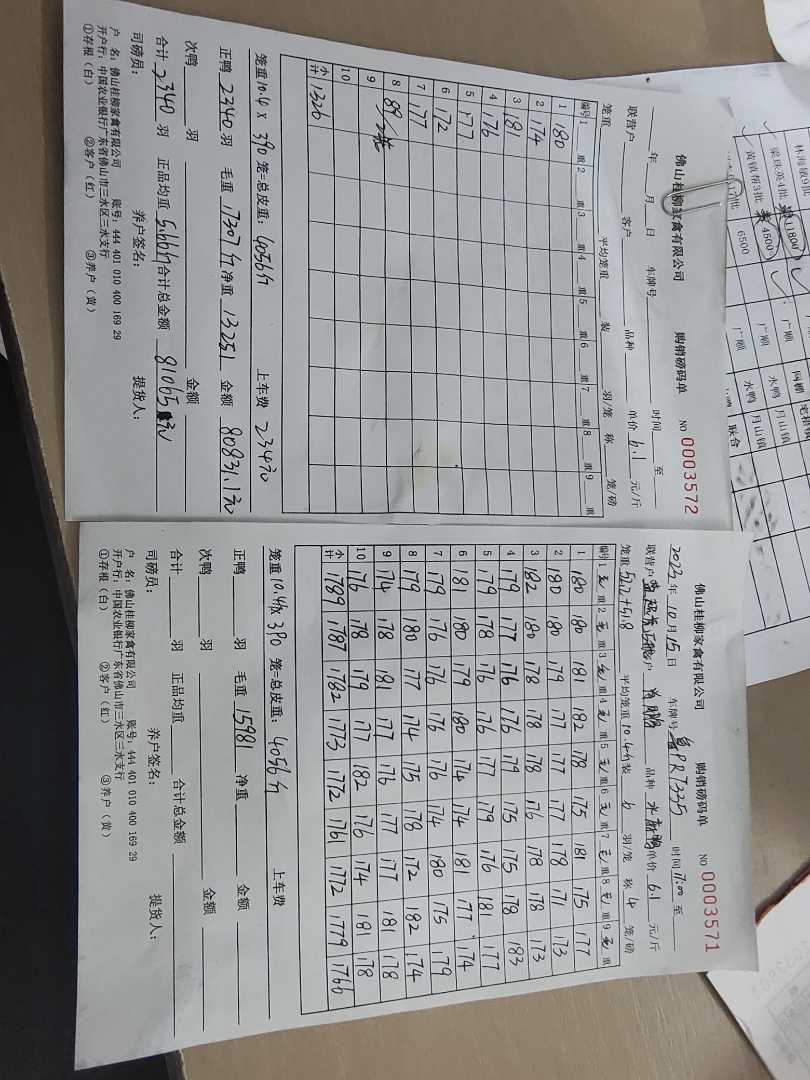 佛山桂柳家禽有限公司 购销磅码单 NO 0003571
2023年10月15日 车牌号 粤PRT335 时间 11:00 至
联营户 客户 品种 水 鸭 单价 6.1 元/斤
笼重 52.2+51.8 平均笼重 10.4斤 装 6 羽/笼 称 4 笼/磅
编号 1 重 2 重 3 重 4 重 5 重 6 重 7 重 8 重 9 重
1 180 180 181 182 178 175 181 175 177
2 180 180 179 177 177 177 178 171 173
3 182 180 178 178 178 176 178 178 173
4 179 177 176 176 179 175 175 178 183
5 179 178 176 176 177 179 176 181 177
6 181 180 179 180 174 174 181 177 174
7 179 176 176 176 176 174 180 175 179
8 179 180 177 174 175 178 172 182 174
9 174 178 181 177 176 177 177 181 178
10 176 178 179 177 182 176 174 181 178
小计 1789 1787 1782 1773 1772 1761 1772 1779 1766
笼重 10.4x 390 笼=总皮重: 4056斤 上车费
正鸭 羽 毛重 15981 净重 金额
次鸭 羽 金额
合计 羽 正品均重 合计总金额
司磅员: 养户签名: 提货人:
户 名: 佛山桂柳家禽有限公司 账号: 444 401 010 400 169 29
开户行: 中国农业银行广东省佛山市三水区三水支行
①存根(白) ②客户(红) ③养户(黄)
佛山桂柳家禽有限公司 购销磅码单 NO 0003572
年 月 日 车牌号 时间 至
联营户 客户 品种 单价 6.1 元/斤
笼重 平均笼重 装 羽/笼 称 笼/磅
编号 1 重 2 重 3 重 4 重 5 重 6 重 7 重 8 重 9 重
1 180
2 174
3 181
4 176
5 177
6 172
7 177
8 89/2笼
9
10
小计 1326
笼重 10.4 x 390 笼=总皮重: 4056斤 上车费 234元
正鸭 2340 羽 毛重 17307斤 净重 13251 金额 80831.1元
次鸭 羽 金额
合计 2340 羽 正品均重 5.66斤 合计总金额 81065元
司磅员: 养户签名: 提货人:
户 名: 佛山桂柳家禽有限公司 账号: 444 401 010 400 169 29
开户行: 中国农业银行广东省佛山市三水区三水支行
①存根(白) ②客户(红) ③养户(黄)
林海敏9批 11800 广顺 网棚
梁珠英4批 4500 广顺 水鸭 月山镇
黄镇帮3批 6500 广顺 水鸭 月山镇
联合